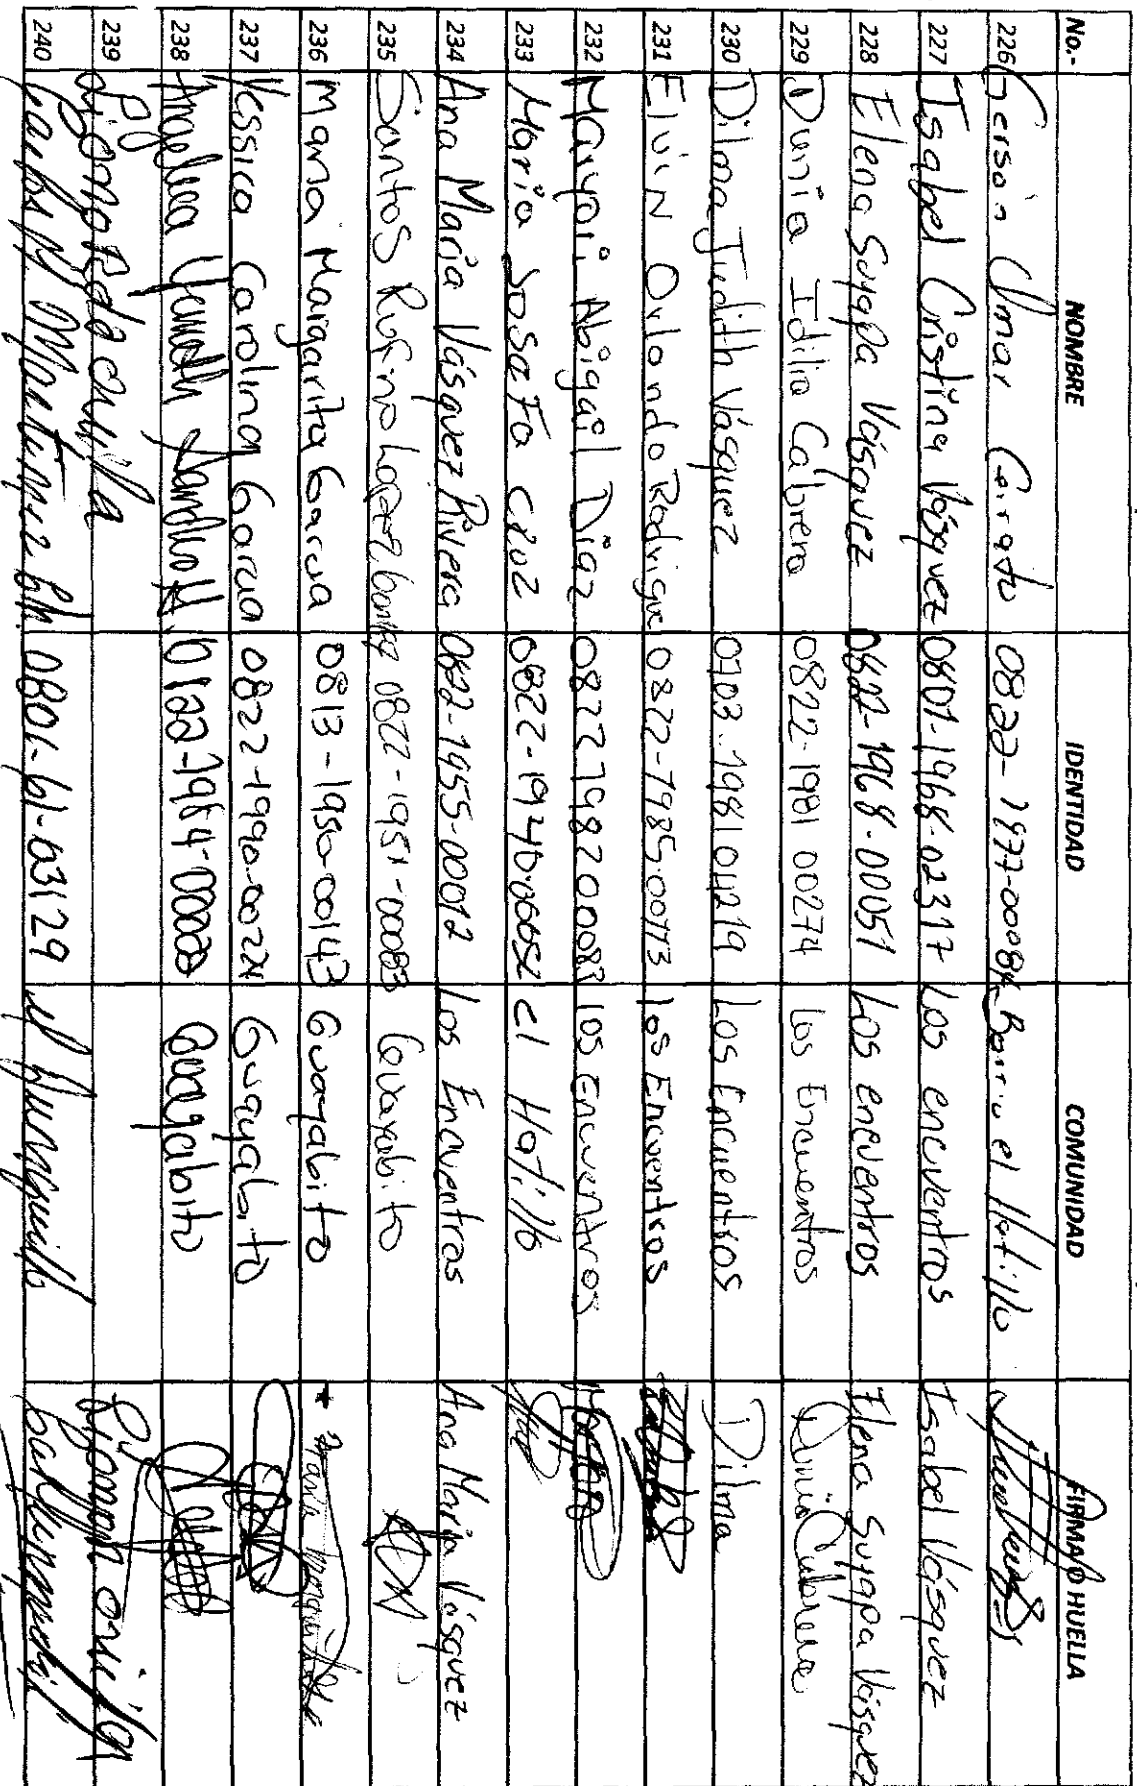 No.- NOMBRE IDENTIDAD COMUNIDAD FIRMA O HUELLA
226 Gerson Omar 0822-1977-00084 Barrio el Hatillo
227 Isabel Cristina Vásquez 0801-1968-02317 Los encuentros Isabel Vásquez
228 Elena Suyapa Vásquez 0822-1968-00051 Los encuentros Elena Suyapa Vásquez
229 Dunia Idilia Cabrera 0822-1981 00274 los Encuentros Dunia Cabrera
230 Dilma Judith Vásquez 0703-1981 04219 Los Encuentros Dilma
231 Elvin Orlando Rodrigue 0822-1985-00173 los Encuentros
232 Mayori Abigail Diaz 0822198200088 los Encuentros
233 Maria Josefa Cruz el Hatillo
234 Ana Maria Vásquez Rivera 0822-1955-00012 Los Encuentros Ana Maria Vásquez
235 Santos Rufino Lopez 0822-1951-00083 Guayabito
236 Maria Margarita Garcia 0813-1950-00143 Guayabito * Maria
237 Yessica Carolina Garcia 0822-1990-00224 Guayabito
238 Angelica Guayabito
239
240 Carlos M. Martinez 0801-61-03129 el